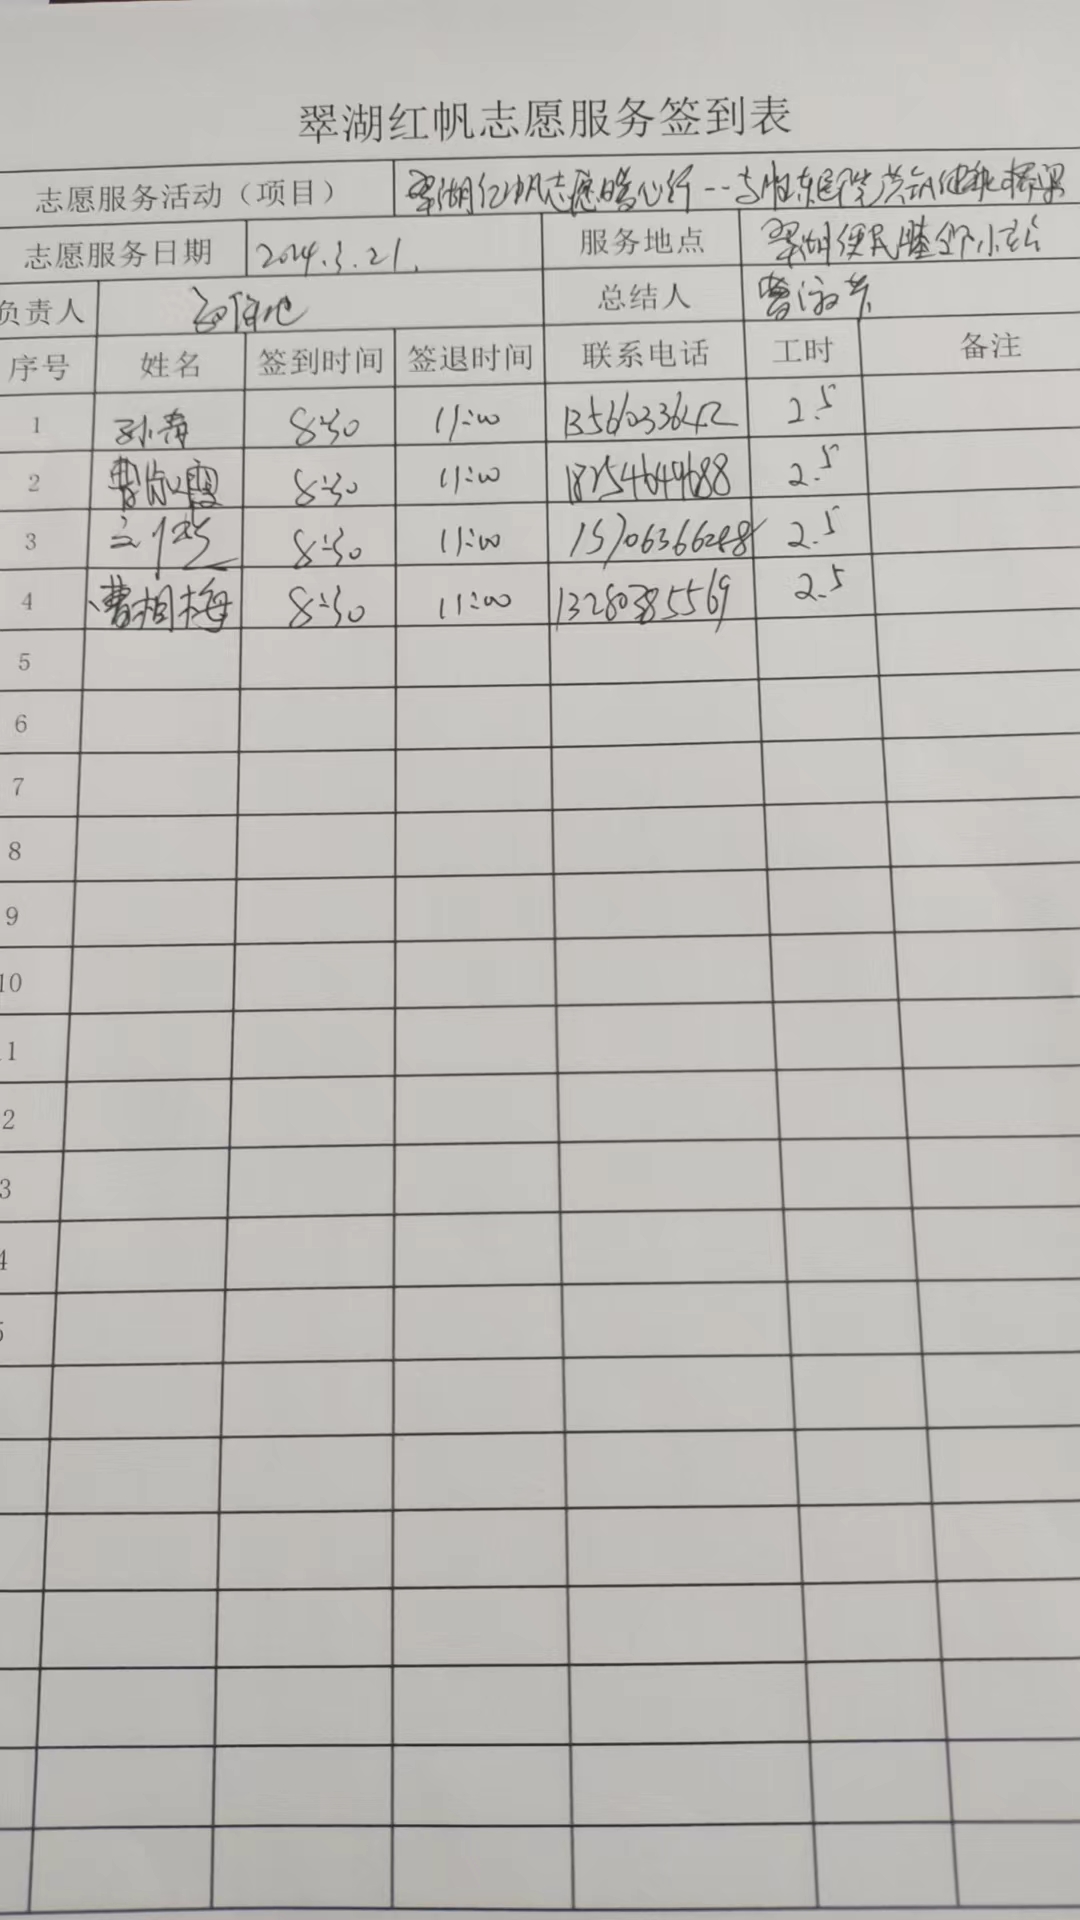 翠湖红帆志愿服务签到表
志愿服务活动（项目） 翠湖红帆志愿暖心行--与胜东医院共筑健康桥梁
志愿服务日期 2024.3.21. 服务地点 翠湖便民驿站
负责人 总结人 曹淑芳
序号 姓名 签到时间 签退时间 联系电话 工时 备注
1 孙青 8:30 11:00 2.5
2 8:30 11:00 18254649688 2.5
3 8:30 11:00 15706366248 2.5
4 曹相梅 8:30 11:00 13280385569 2.5
5
6
7
8
9
10
1
2
3
4
5